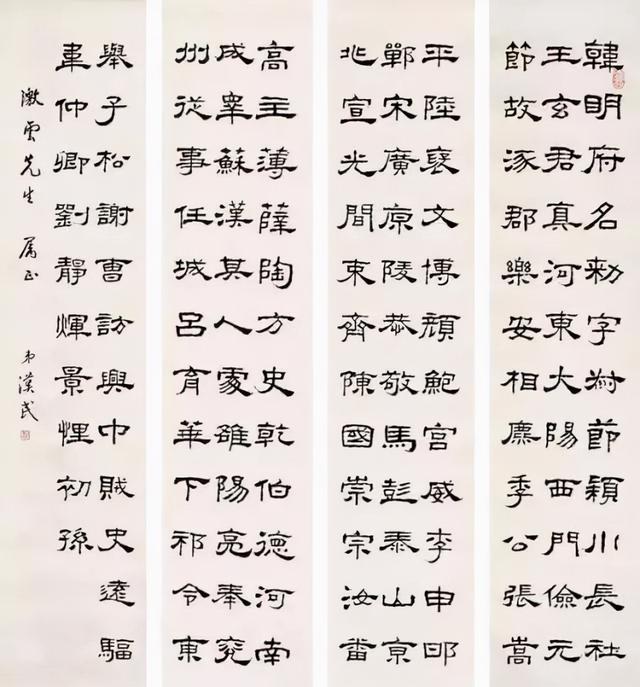 韓明府名勑字叔節穎川長社
王玄君真河東大陽西門儉元
節故涿郡樂安相麃季公張嵩
平陸襃文博頏鮑宮威李申邯
鄲宋廣原陵恭敬馬彭泰山京
兆宣光間束齊陳國崇宗汝番
高主薄薛陶方史乾伯德河南
成睪蘇漢其人處雒陽亮奉兗
州從事任城呂育華下邳令東
舉子松謝曹訪興中賊史遠驅
韋仲卿劉靜煇景悝初孫
澂雲先生 屬正 弟漢民